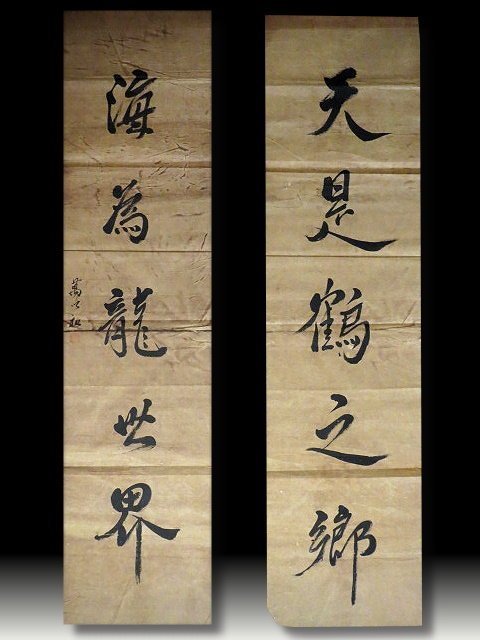 天是鶴之鄉
海為龍世界